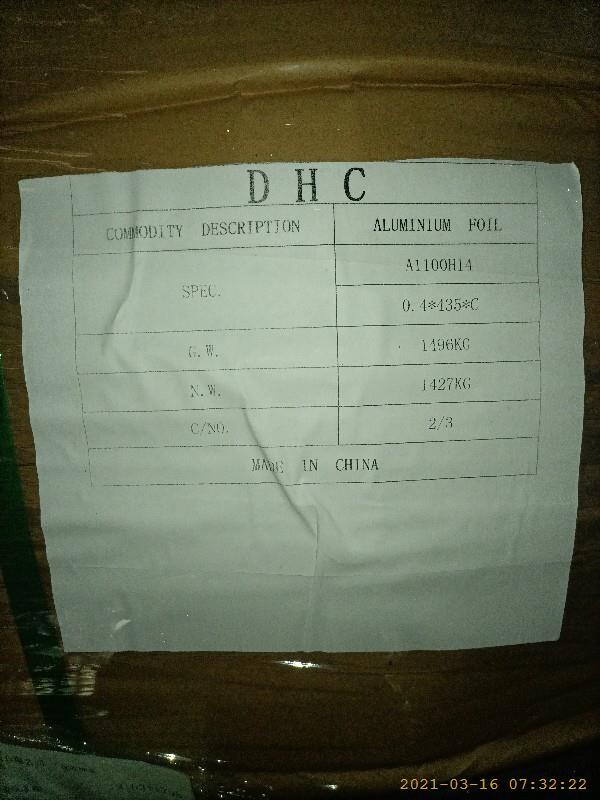 D H C
COMMODITY DESCRIPTION ALUMINIUM FOIL
SPEC. A1100H14
0.4*435*C
G.W. 1496KG
N.W. 1427KG
C/NO. 2/3
MADE IN CHINA
2021-03-16 07:32:22